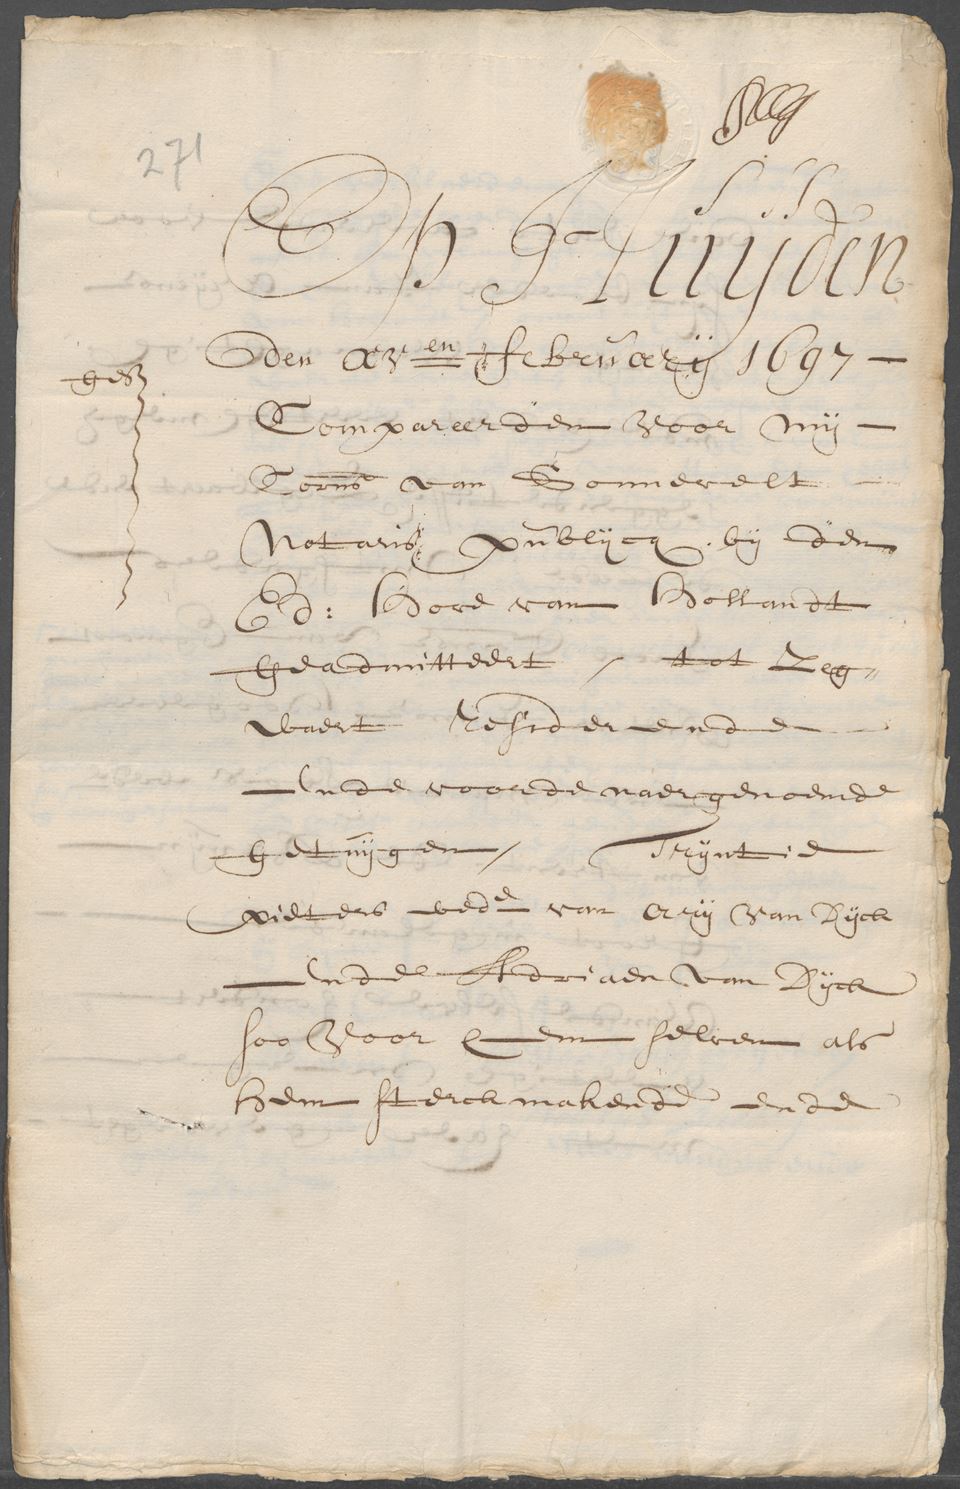 271
Op Huijden
den xv en februarij 1697 –
Compareerden voor mij –
Corns van Sonnevelt –
Notaris publijcq. bij den
Ed: Hove van Hollandt
geadmitteert / tot Zeg„
waert residerende –
Ende voorde naergenoemde
getuijgen / Trijntie
pieters wede van Arij van Dijck
Ende Adriaen van Dijck
soo voor hem selven als
hem sterckmakende ende